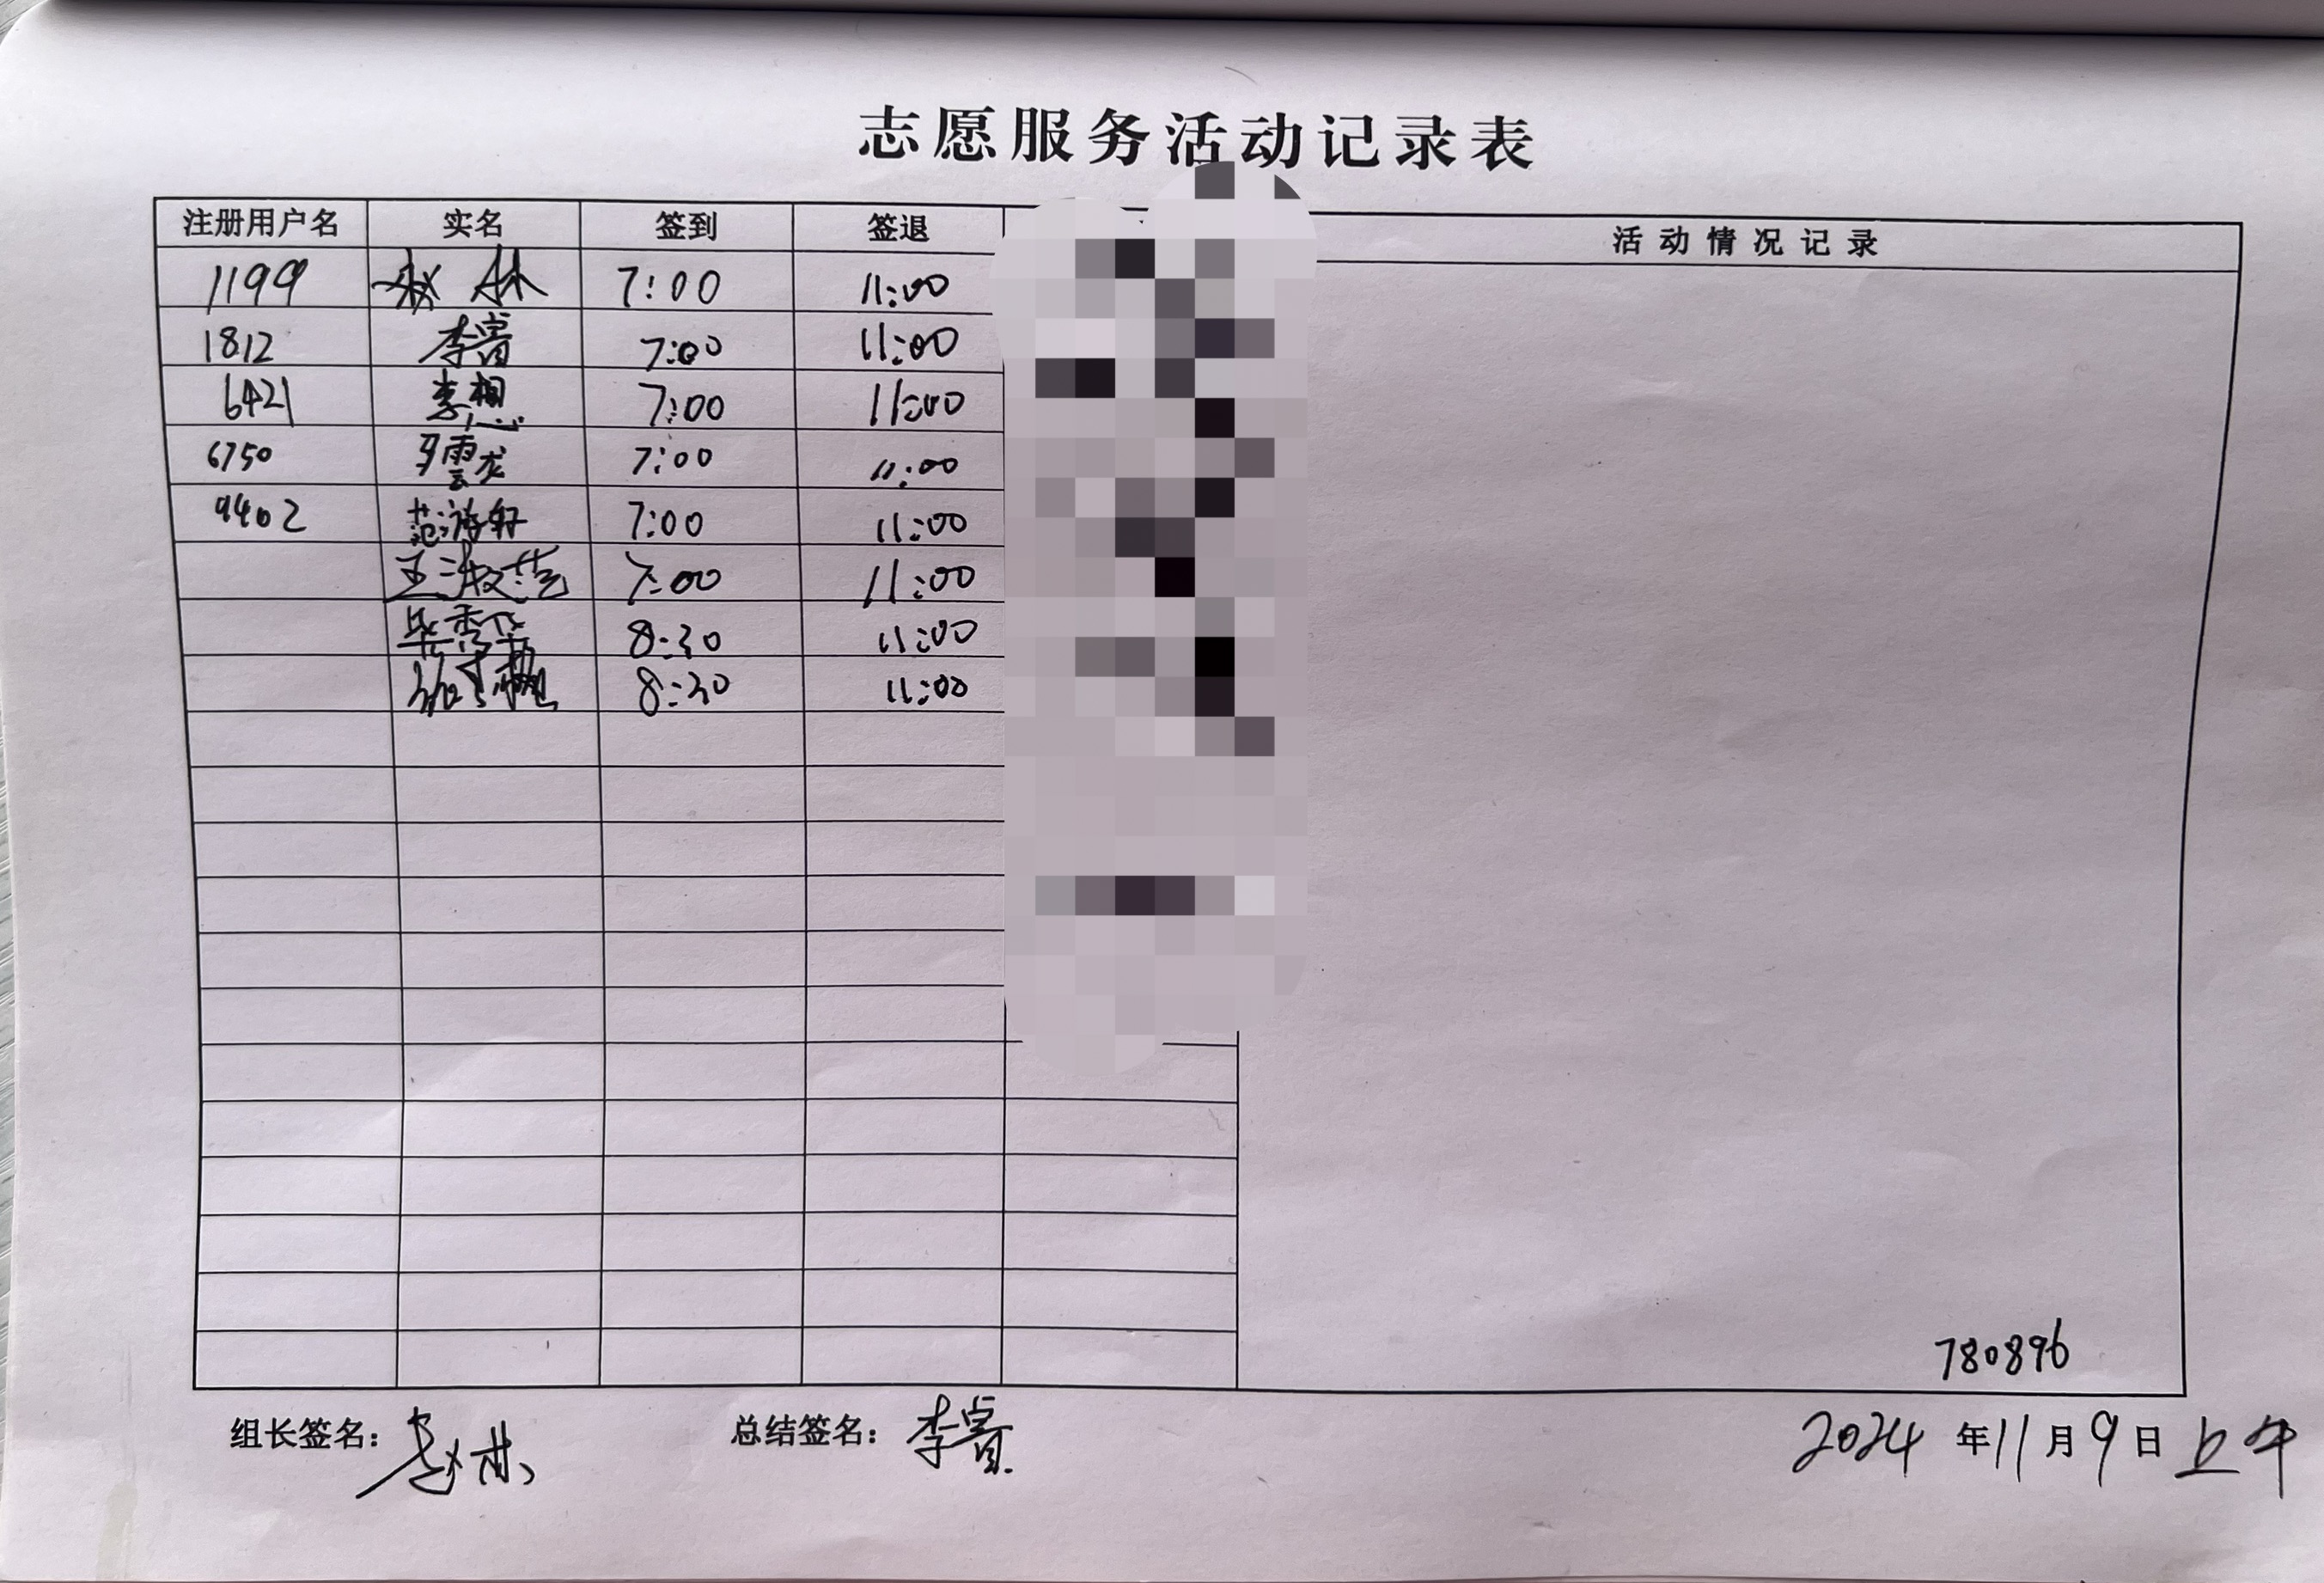 志愿服务活动记录表
注册用户名 实名 签到 签退 活动情况记录
1199 赵林 7:00 11:00
1812 李睿 7:00 11:00
6421 李想 7:00 11:00
6750 罗雲龙 7:00 11:00
9402 范海轩 7:00 11:00
王淑芸 7:00 11:00
毕秀华 8:30 11:00
8:30 11:00
780896
组长签名： 赵林 总结签名： 李睿 2024 年 11 月 9 日 上午